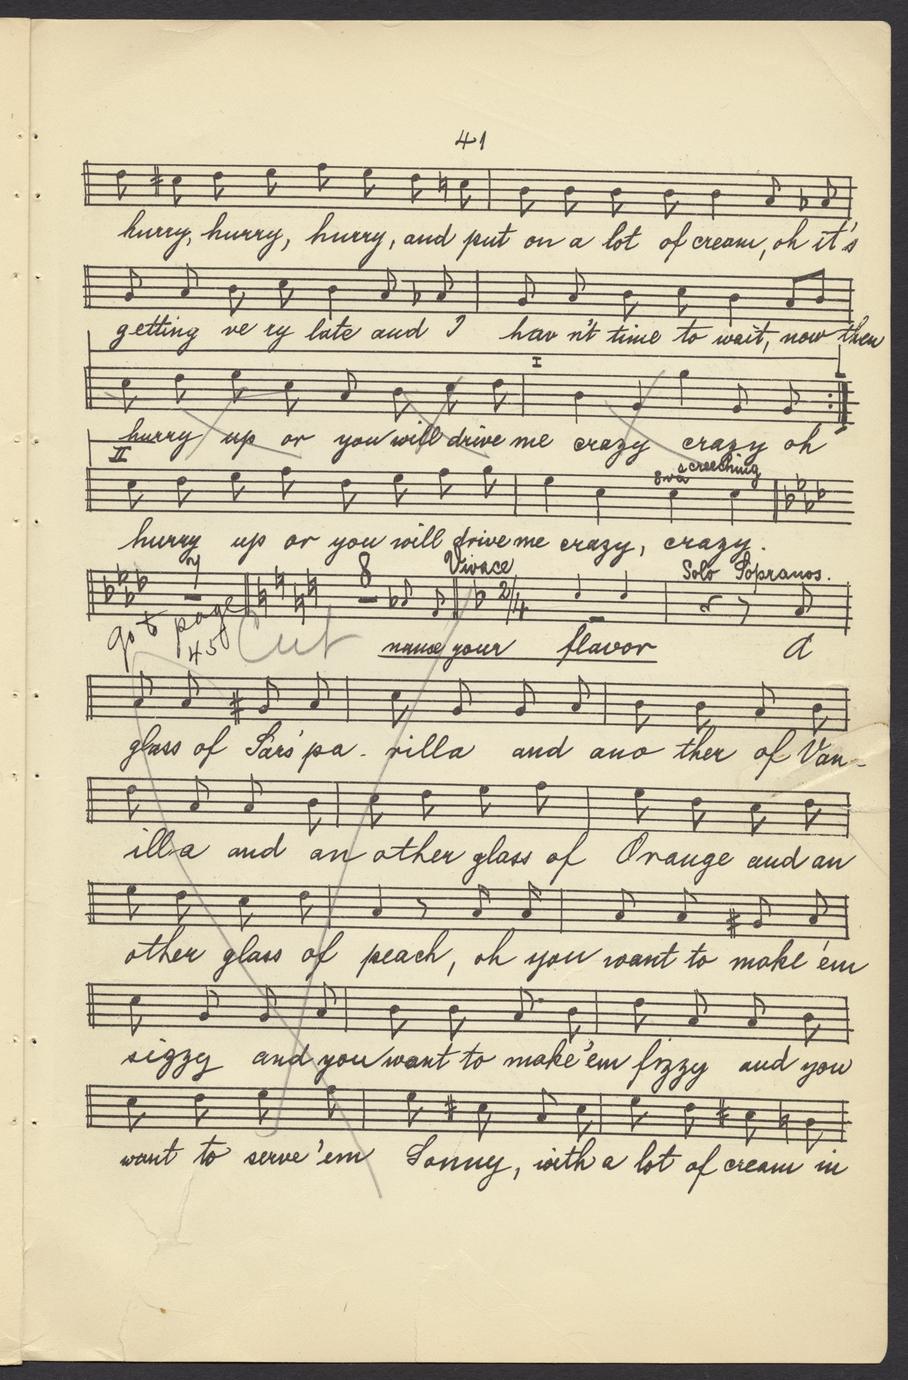 41
hurry, hurry, hurry, and put on a lot of cream, oh it's
getting ve ry late and I hav n't time to wait, now then
I
hurry up or you will drive me crazy crazy oh
II
8va screeching
hurry up or you will drive me crazy, crazy.
7 8 Vivace 2/4 Solo Sopranos.
go to page 45 Cut name your flavor A
glass of Sars'pa - rilla and ano ther of Van-
illa and an other glass of Orange and an
other glass of peach, oh you want to make 'em
sizzy and you want to make 'em fizzy and you
want to serve 'em Sonny, with a lot of cream in